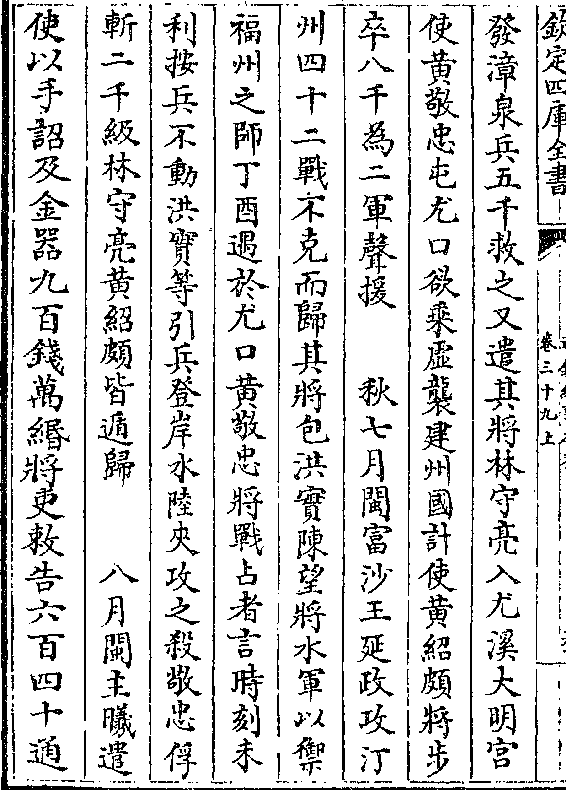 欽定四庫全書
卷三十九上
發漳泉兵五千救之又遣其將林守亮入尤溪大明宫
使黄敬忠屯尤口欲乘虛襲建州國計使黄紹頗將步
卒八千為二軍聲援　秋七月閩富沙王延政攻汀
州四十二戰不克而歸其將包洪實陳望將水軍以禦
福州之師丁酉遇於尤口黄敬忠將戰占者言時刻未
利按兵不動洪實等引兵登岸水陸夾攻之殺敬忠俘
斬二千級林守亮黄紹頗皆遁歸　八月閩主曦遣
使以手詔及金器九百錢萬緡將吏敕告六百四十通